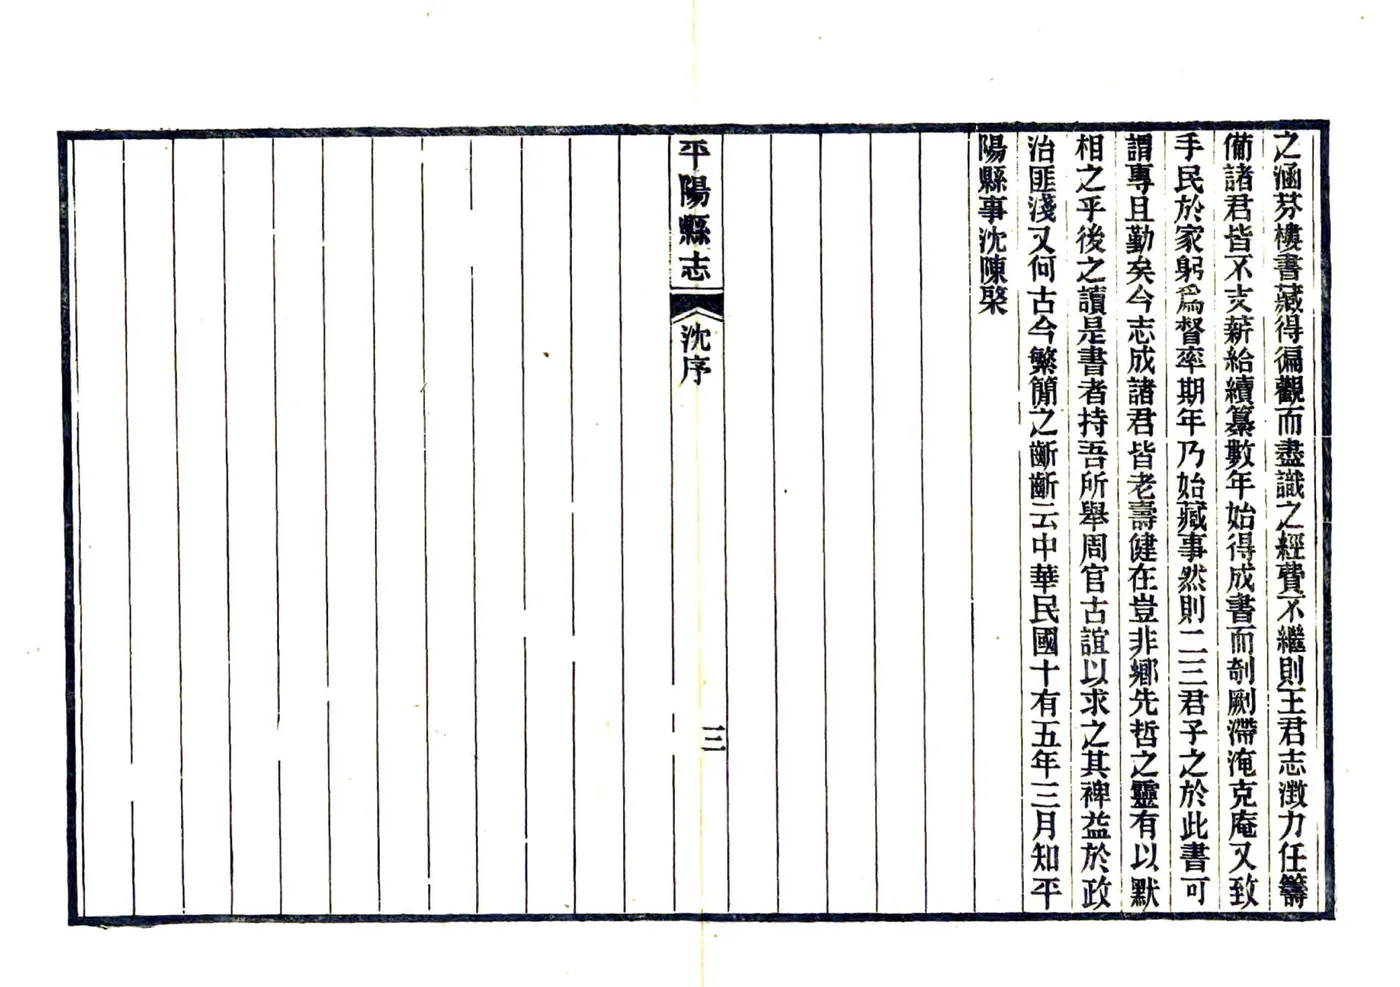 之涵芬樓書藏得徧觀而盡識之經費不繼則王君志澂力任籌
備諸君皆不支薪給續纂數年始得成書而剞劂滯淹克庵又致
手民於家躬爲督率期年乃始蕆事然則二三君子之於此書可
謂專且勤矣今志成諸君皆老壽健在豈非鄉先哲之靈有以默
相之乎後之讀是書者持吾所舉周官古誼以求之其裨益於政
治匪淺又何古今繁簡之齗齗云中華民國十有五年三月知平
陽縣事沈陳棨
平陽縣志
沈序
三